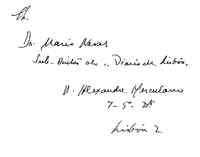 Dr. Mário Neves
Sub-Director do "Diário de Lisboa"
R. Alexandre Herculano
7-5º. Dt
Lisboa 2